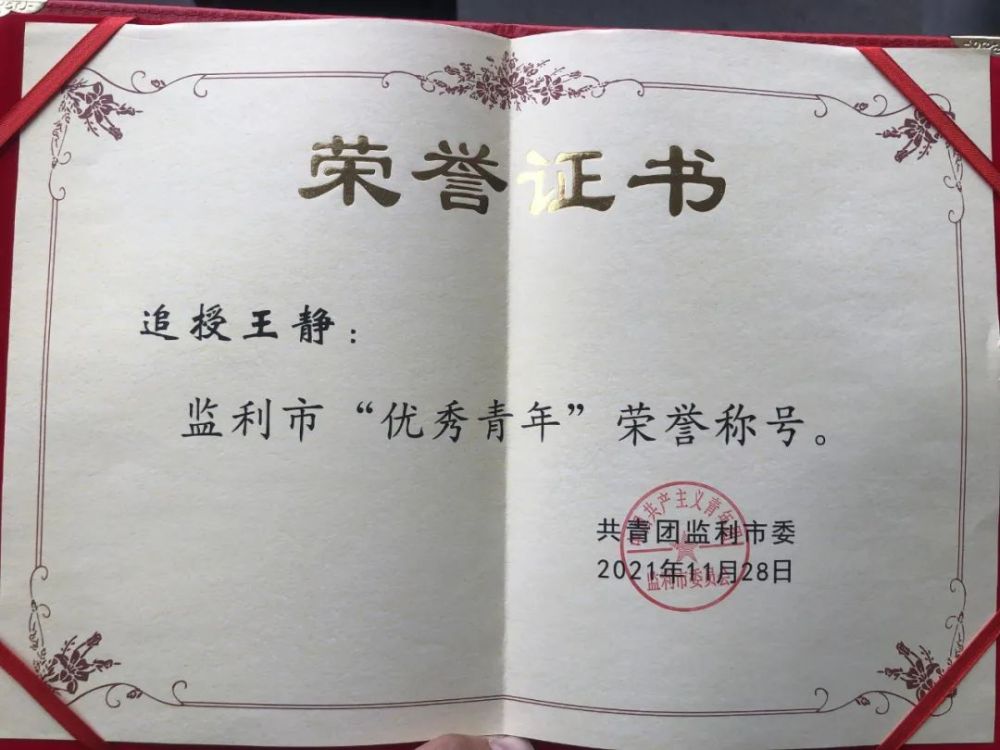 荣誉证书
追授王静：
监利市“优秀青年”荣誉称号。
共青团监利市委
2021年11月28日
共产主义青年团
监利市委员会